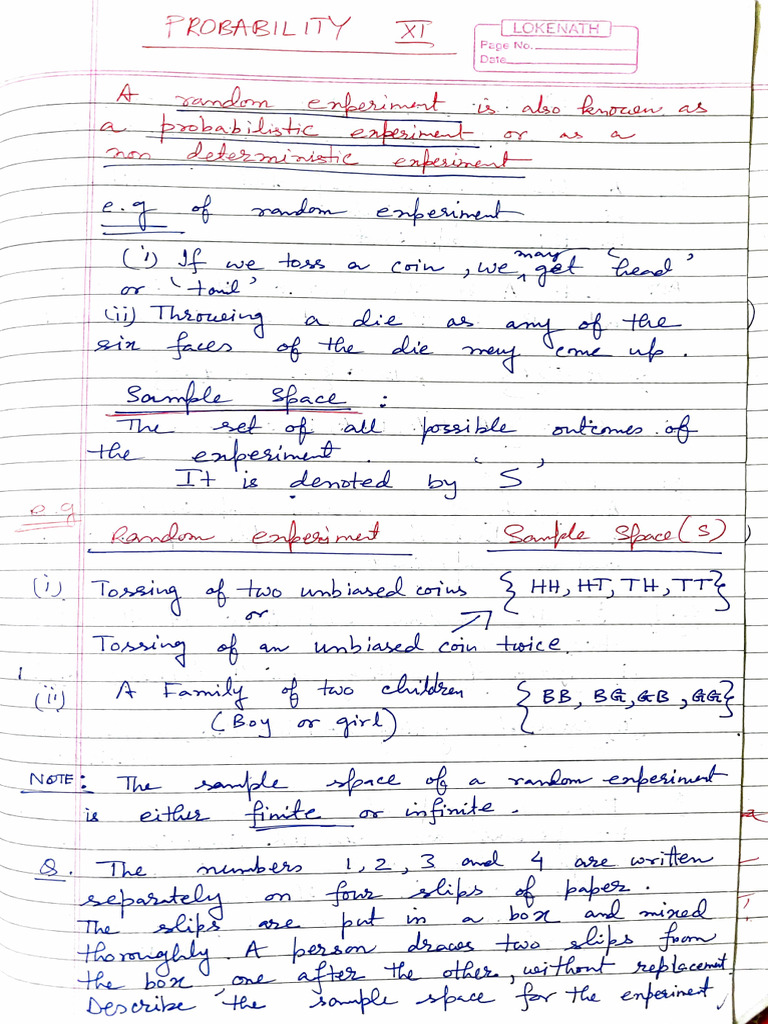 PROBABILITY XI
LOKENATH
Page No.
Date
A random experiment is also known as
a probabilistic experiment or as a
non deterministic experiment
e.g of random experiment
(i) If we toss a coin, we may get 'head'
or 'tail'.
(ii) Throwing a die as any of the
six faces of the die may come up.
Sample Space :
The set of all possible outcomes of
the experiment.
It is denoted by 'S'
e.g
Random experiment Sample Space (S)
(i) Tossing of two unbiased coins {HH, HT, TH, TT}
or
Tossing of an unbiased coin twice.
(ii) A Family of two children {BB, BG, GB, GG}
(Boy or girl)
NOTE: The sample space of a random experiment
is either finite or infinite.
Q. The numbers 1, 2, 3 and 4 are written
separately on four slips of paper.
The slips are put in a box and mixed
thoroughly. A person draws two slips from
the box, one after the other, without replacement.
Describe the sample space for the experiment.